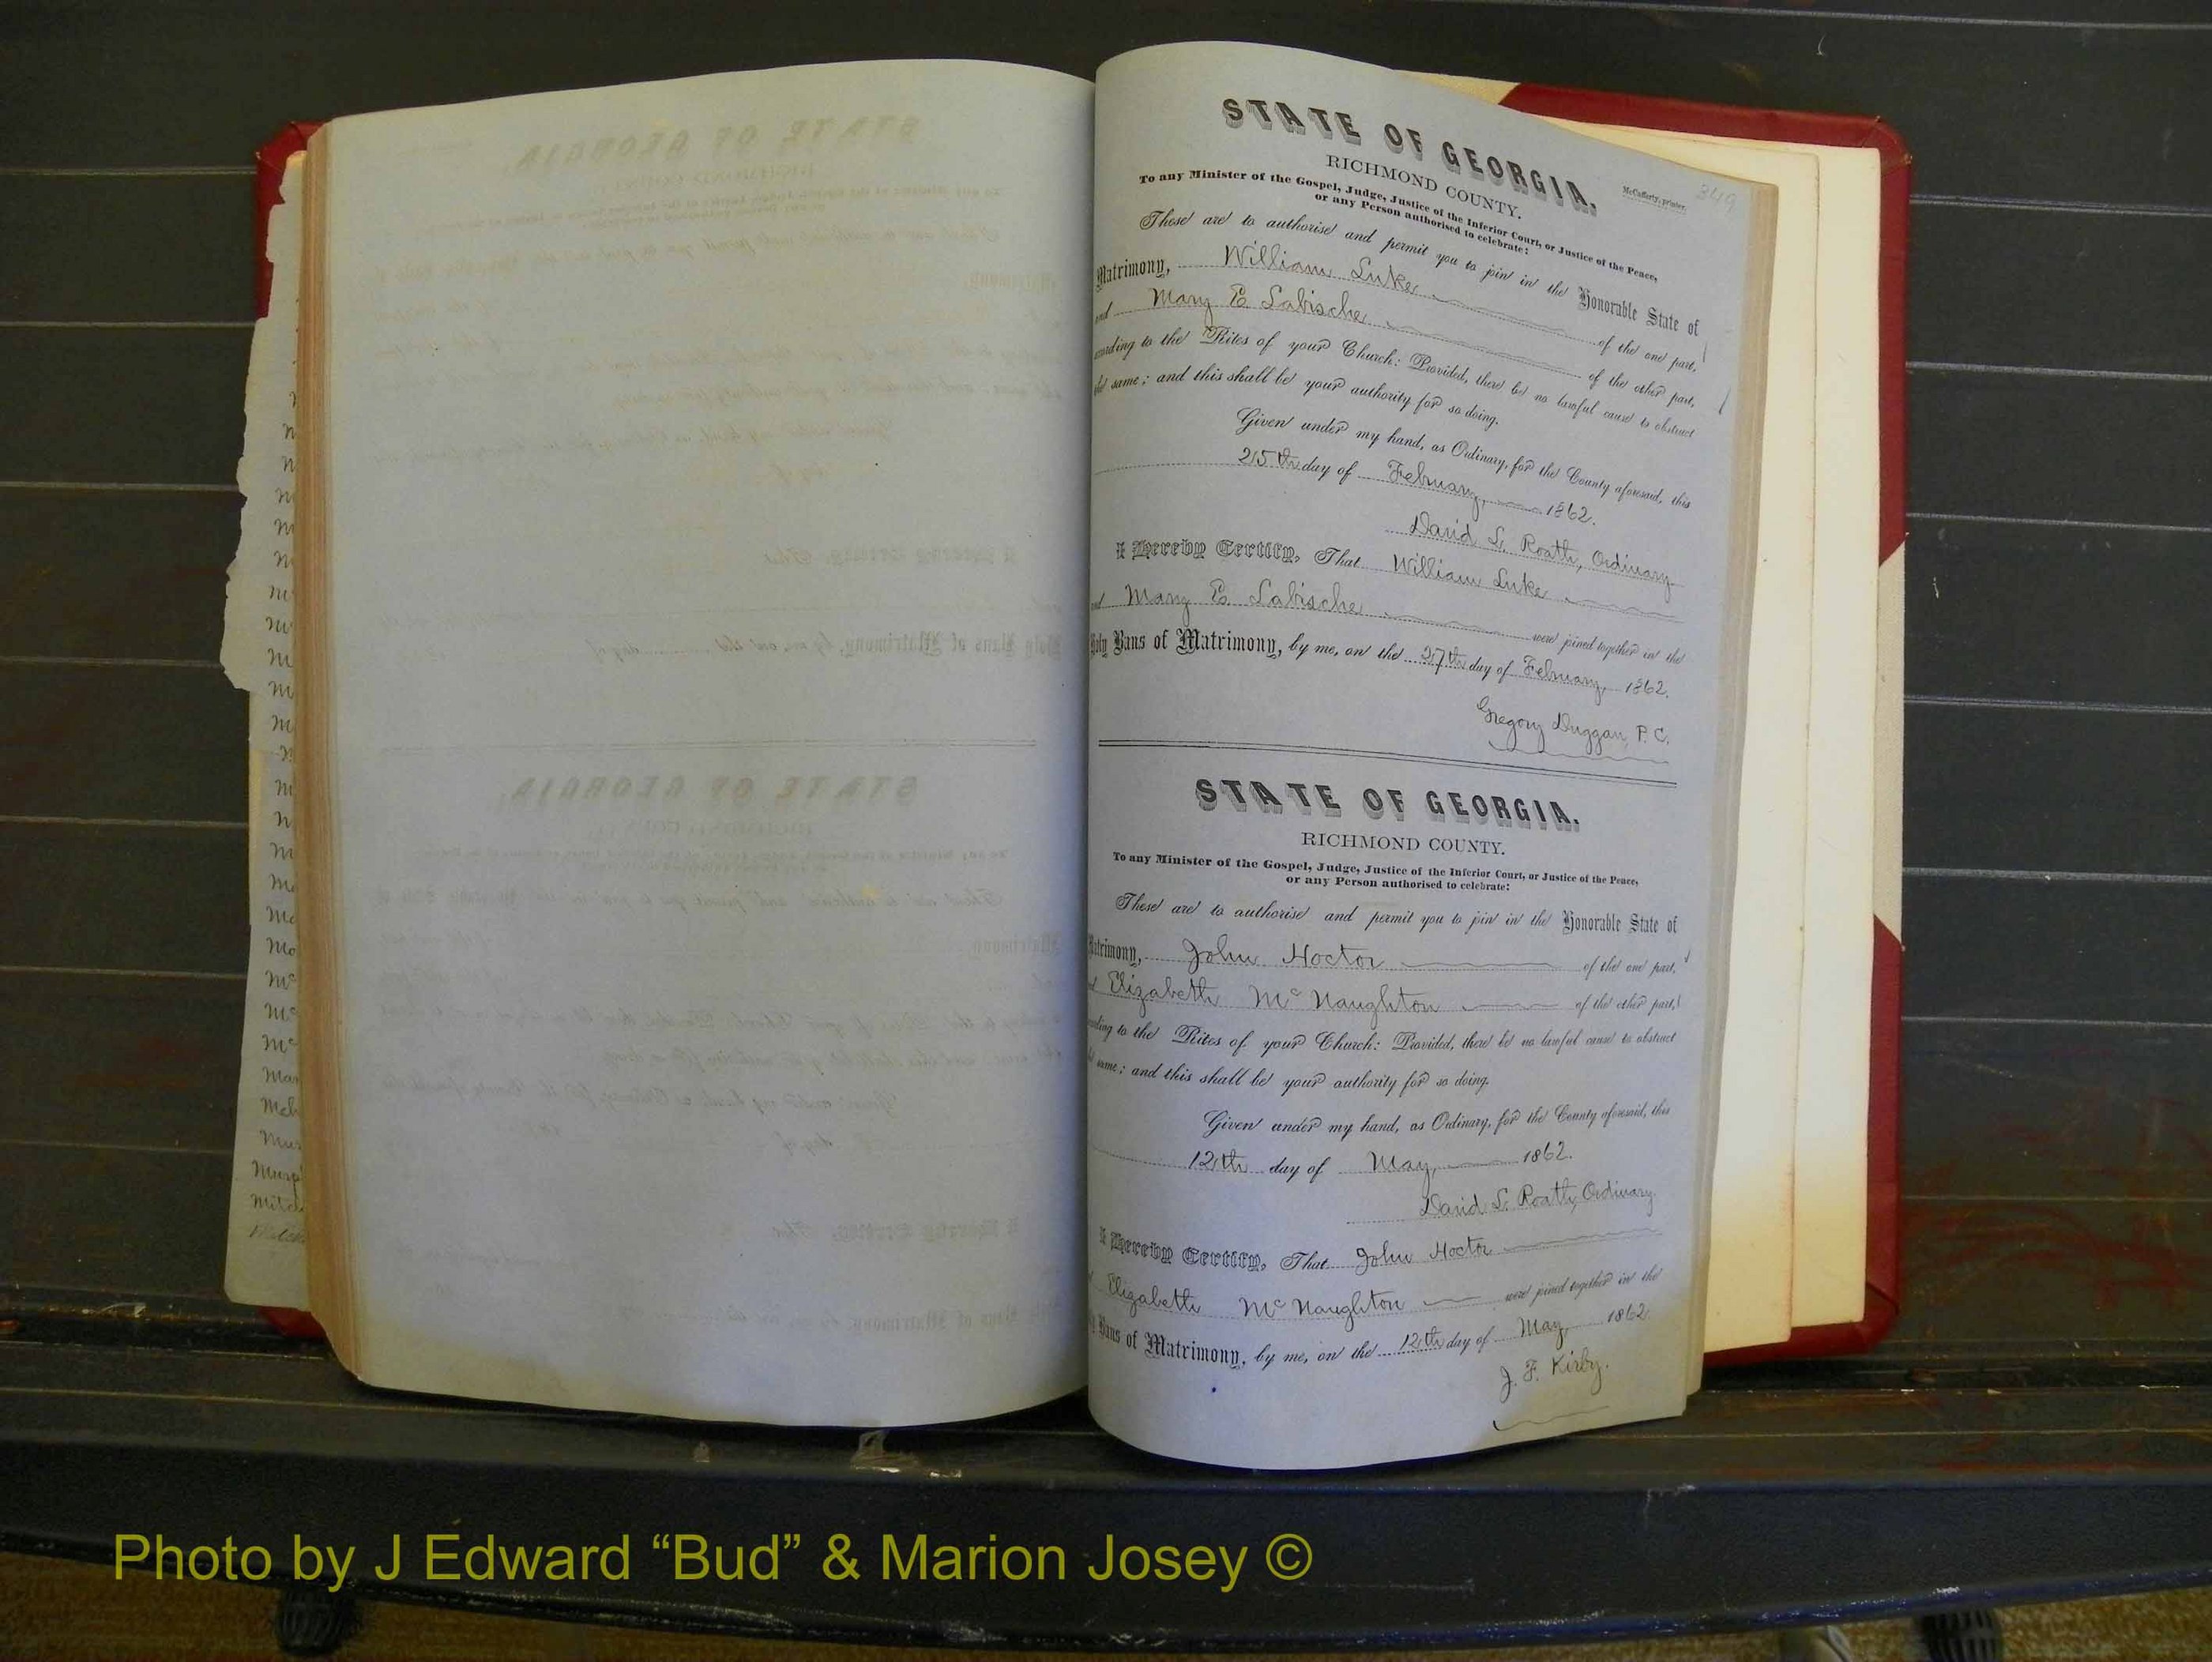 349
McCafferty, printer.
STATE OF GEORGIA.
RICHMOND COUNTY.
To any Minister of the Gospel, Judge, Justice of the Inferior Court, or Justice of the Peace,
or any Person authorised to celebrate:
These are to authorise and permit you to join in the Honorable State of
Matrimony, William Luke of the one part,
and Mary E Labische of the other part,
according to the Rites of your Church: Provided, there be no lawful cause to obstruct
the same; and this shall be your authority for so doing.
Given under my hand, as Ordinary, for the County aforesaid, this
25th day of February, 1862.
David L. Roath, Ordinary
I Hereby Certify, That William Luke
and Mary E. Labische were joined together in the
Holy Bans of Matrimony, by me, on the 27th day of February, 1862.
Gregory Duggan, P. C.
STATE OF GEORGIA.
RICHMOND COUNTY.
To any Minister of the Gospel, Judge, Justice of the Inferior Court, or Justice of the Peace,
or any Person authorised to celebrate:
These are to authorise and permit you to join in the Honorable State of
Matrimony, John Hoctor of the one part,
Elizabeth McNaughton of the other part,
according to the Rites of your Church: Provided, there be no lawful cause to obstruct
same; and this shall be your authority for so doing.
Given under my hand, as Ordinary, for the County aforesaid, this
12th day of May, 1862.
David L. Roath, Ordinary
I Hereby Certify, That John Hoctor
Elizabeth McNaughton were joined together in the
Bans of Matrimony, by me, on the 12th day of May, 1862.
J. F. Kirby.
Photo by J Edward “Bud” & Marion Josey ©